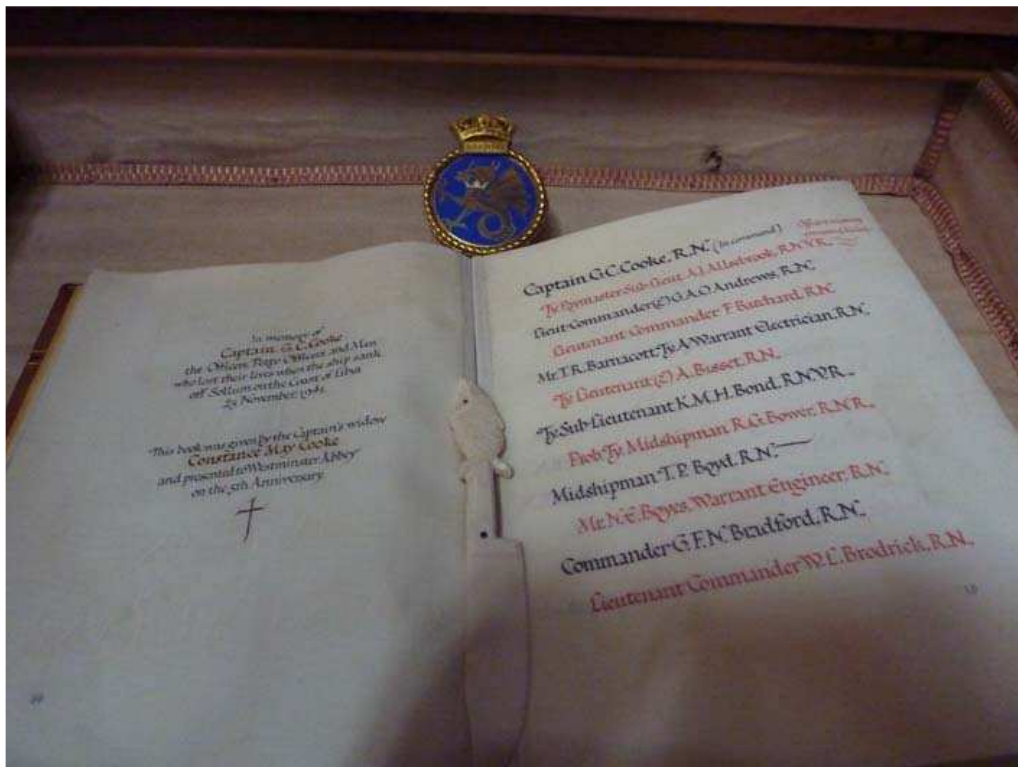 In memory of
Captain G. C. Cooke
the Officers, Petty Officers and Men
who lost their lives when the ship sank
off Sollum on the Coast of Libia
25 November, 1941.
This book was given by the Captain's widow
Constance May Cooke
and presented to Westminster Abbey
on the 5th Anniversary
Captain G.C. Cooke, R.N. (In command)
Ty. Paymaster Sub-Lieut. A.J. Allsebrook, R.N.V.R.
Lieut-Commander (E) G.A.O. Andrews, R.N.
Lieutenant Commander F. Bunhard, R.N.
Mr. T.R. Barnacott, Ty. A. Warrant Electrician, R.N.
Ty. Lieutenant (E) A. Busset, R.N.
Ty. Sub-Lieutenant K.M.H. Bond, R.N.V.R.
Prob. Ty. Midshipman R.G. Bower, R.N.R.
Midshipman T.P. Boyd, R.N.
Mr. N.E. Boyes, Warrant Engineer, R.N.
Commander G.F.N. Bradford, R.N.
Lieutenant Commander W.L. Brodrick, R.N.